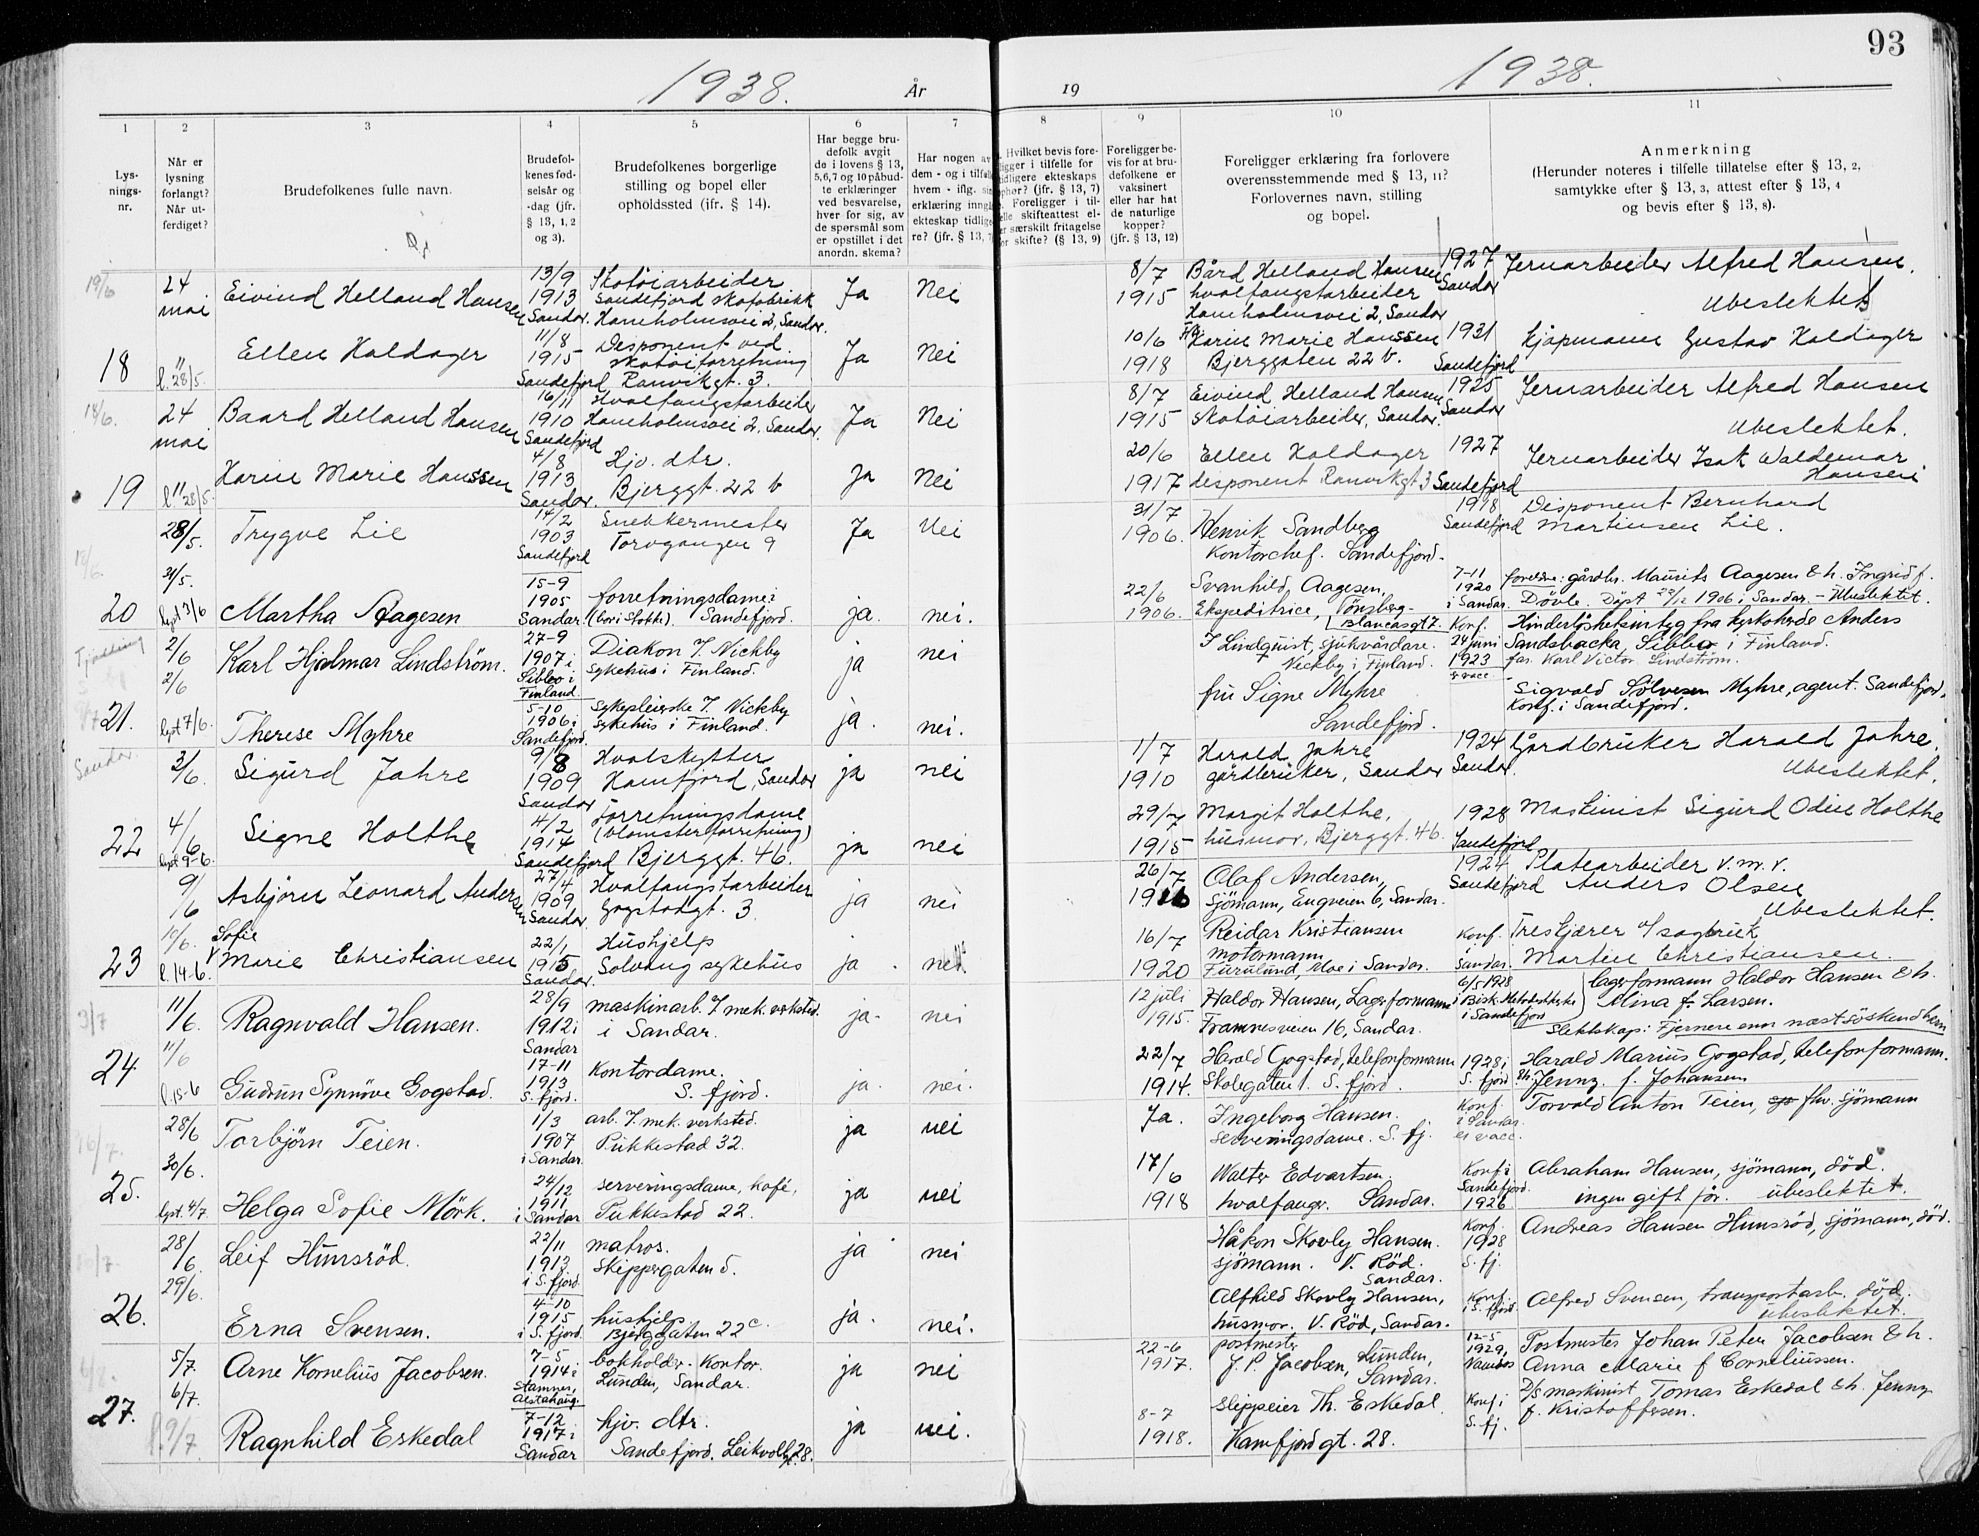 93
1938. År 19 1938.
1 2 3 4 5 6 7 8 9 10 11
Lys-
nings-
nr.
Når er
lysning
forlangt?
Når ut-
ferdiget?
Brudefolkenes fulle navn.
Brudefol-
kenes fød-
selsår og
-dag (jfr.
§ 13, 1, 2
og 3).
Brudefolkenes borgerlige
stilling og bopel eller
opholdssted (jfr. § 14).
Har begge bru-
defolk avgit
de i lovens § 13,
5,6,7 og 10 påbud-
te erklæringer
ved besvarelse,
hver for sig, av
de spørsmål som
er opstillet i det
anordn. skema?
Har nogen av
dem - og i tilfelle
hvem - iflg. sin
erklæring inngå
ekteskap tidlige
re? (jfr. § 13, 7
Hvilket bevis fore-
ligger i tilfelle for
tidligere ekteskaps
ophør? (jfr. § 13, 7)
Foreligger i til-
felle skifteattest el-
er særskilt fritagelse
or skifte? (§ 13, 9)
Foreligger be-
vis for at bru-
defolkene er
vaksinert
eller har hat
de naturlige
kopper?
(jfr. § 13, 12)
Foreligger erklæring fra forlovere
overensstemmende med § 13, 11?
Forlovernes navn, stilling
og bopel.
Anmerkning
(Herunder noteres i tilfelle tillatelse efter § 13, 2,
samtykke efter § 13, 3, attest efter § 13, 4
og bevis efter § 13, 8).
19/6
24
mai
Eivind Helland Hansen
13/9
1913
Sandar.
Skotøiarbeider
Sandefjord skofabrikk
Hameholmsvei 2, Sandar.
Ja Nei
8/7
1915
Bård Helland Hansen
hvalfangstarbeider
Hameholmsvei 2, Sandar
1927
Sandar
Jernarbeider Alfred Hansen.
Ubeslektet
18
"
l. 28/5.
Ellen Haldager
11/8
1915
Sandefjord
Disponent ved
skotøiforretning
Ranvikgt. 3.
Ja Nei
10/6
1918
Karin Marie Hanssen
Bjerggaten 22 b.
1931
Sandefjord
Kjøpmann Gustav Haldager
18/6.
24
mai
Baard Helland Hansen
16/11
1910
Sandefjord
Hvalfangstarbeider
Hameholmsvei 2, Sandar.
Ja Nei
8/7
1915
Eivind Helland Hansen
skotøiarbeider, Sandar.
1925
Sandar
Jernarbeider Alfred Hansen
Ubeslektet.
19
"
l. 28/5.
Karin Marie Hanssen
4/8
1913
Sandar.
Hjv. dtr.
Bjerggt. 22 b
Ja Nei
20/6
1917
Ellen Haldager
disponent Ranvikgt 3
1927
Sandefjord
Jernarbeider Isak Waldemar
Hansen
28/5.
Trygve Lie
14/2
1903
Sandefjord
Snekkermester
Torvgangen 9
Ja Nei
31/7
1906.
Henrik Sandberg
Kontorchef. Sandefjord.
1918
Sandefjord
Disponent Bernhard
Martinsen Lie.
20
31/5.
lyst 3/6
Martha Aagesen
15-9
1905
Sandar.
forretningsdame i
(bor i Stokke). Sandefjord.
ja. nei.
22/6
1906.
Svanhild Aagesen,
Ekspeditrice, Tönsberg.
7-11
1920
i Sandar.
foreldre: gårdbr. Maurits Aagesen & h. Ingrid f.
Dövle. Döpt 1906 i Sandar. - Ubeslektet.
2/6
Karl Hjalmar Lindström.
27-9
1907 i
Sibbo i
Finland.
Diakon v. Nickby
sykehus i Finland.
ja nei
J Lindquist, sjukvårdare.
Nickby i Finland.
Konf.
24 juni
1923
Hinderlöshetsintyg fra kyrkoherde Anders
Sandbacka, Sibbo i Finland.
far. Karl Victor Lindström.
21.
2/6
lyst 7/6.
Therese Myhre
5-10
1906 i
Sandefjord.
sykepleierske v. Nickby
sykehus i Finland.
ja. nei.
fru Signe Myhre
Sandefjord.
Sigvald Sölvesen Myhre, agent. Sandefjord.
Konf. i Sandefjord.
Sandar.
3/6.
Sigurd Jahre
9/8
1909
Sandar
Hvalskytter
Kamfjord, Sandar
ja nei
1/7
1910
Harald Jahre
gårdbruker, Sandar
1924
Sandar.
Gårdbruker Harald Jahre.
Ubeslektet.
22
4/6
lyst 9-6.
Signe Holthe
4/2
1914
Sandefjord
Forretningsdame
(blomsterforretning)
Bjerggt. 46.
ja nei
29/7
1915
Margit Holthe,
husmor, Bjerggt. 46.
1928
Sandefjord
Maskinist Sigurd Odin Holthe
9/6
Asbjörn Leonard Andersen
27/4
1909
Sandar
Hvalfangstarbeider
Gogstadgt. 3
ja nei
26/7
1916
Olaf Andersen,
Sjömann, Engveien 6, Sandar.
1924
Sandefjord
Platearbeider v. m. v.
Anders Olsen
Ubeslektet.
23
10/6.
l. 14-6.
Sofie
Marie Christiansen
22/1
1915
Sandar.
Hushjelp
Solvang sykehus
ja. nei.
16/7
1920
Reidar Kristiansen
motormann
Furulund, Moe i Sandar.
Konf.
i
Sandar.
Treskjærer v/ sagbruk
Martin Christiansen.
3/7
11/6.
Ragnvald Hansen.
28/9
1912 i
Sandar
maskinarb. v. mek. verksted.
i Sandar.
ja. nei
12 juli
1915.
Haldor Hansen, Lagerformann
Framnesveien 16, Sandar.
6/5 1928
i Bisk. Metodistkirke
i Sandefjord
lagerformann Haldor Hansen & h.
Alina f. Larsen.
Slektskap: Fjernere enn næstsöskenbarn
24
11/6
l. 15-6
Gudrun Synnöve Gogstad.
17-11
1913
S. fjord.
Kontordame.
S. fjord.
ja. nei.
22/7
1914.
Harald Gogstad, telefonformann
Skolegaten 1. S. fjord.
1928 i
S. fjord
Harald Marius Gogstad, telefonformann.
& h. Jenny. f. Johansen
16/7.
28/6
Torbjörn Teien.
1/3
1907
i Sandar.
arb. v. mek. verksted.
Pukkestad 32.
ja nei
Ja.
Ingeborg Hansen.
serveringsdame. S. fj.
Konf.
i Sandar.
er vacc.
Torvald Anton Teien, fhv. sjömann
25.
30/6.
lyst. 4/7.
Helga Sofie Mörk.
24/12
1911
i Sandar
serveringsdame, kafé,
Pukkestad 22.
ja nei
17/6
1918
Walter Edvartsen.
hvalfanger. Sandar.
Konf i
Sandefjord.
1926
Abraham Hansen, sjömann, död.
ingen gift för. ubeslektet.
28/6
Leif Hunsröd.
22/11
1913
i S. fjord.
matros.
Skippergaten 5.
ja nei
Håkon Skovly Hansen.
sjömann. V. Röd.
Sandar.
Konf.
1928
S. fj.
Andreas Hansen Hunsröd, sjömann, död.
26.
29/6.
Erna Svensen.
4-10
1915
i S. fjord.
hushjelp
Bjerggaten 22 c.
ja. nei.
Alfhild Skovly Hansen,
husmor. V. Röd, Sandar.
Konf.
i S. fjord.
Alfred Svensen, transportarb. död.
ubeslektet.
5/7.
Arne Kornelius Jacobsen.
7-5
1914 i
Stamnes,
Alstahaug.
bokholder. Kontor.
Lunden, Sandar.
ja nei
22-6
1917.
postmester
J. P. Jacobsen, Lunden,
Sandar.
12-5
1929,
Namsos
Postmester Johan Peter Jacobsen & h.
Anna Marie f Corneliussen.
27.
6/7.
l. 9/7
Ragnhild Eskedal
7-12
1917 i
Sandar
hjv. dtr.
Sandefjord. Leikvollgt. 28.
ja nei.
8-7
1918.
slippeier Th. Eskedal
Kamfjordgt. 28.
Konf i
S. fj.
D/S maskinist Tomas Eskedal & h. Jenny
f. Kristoffersen.